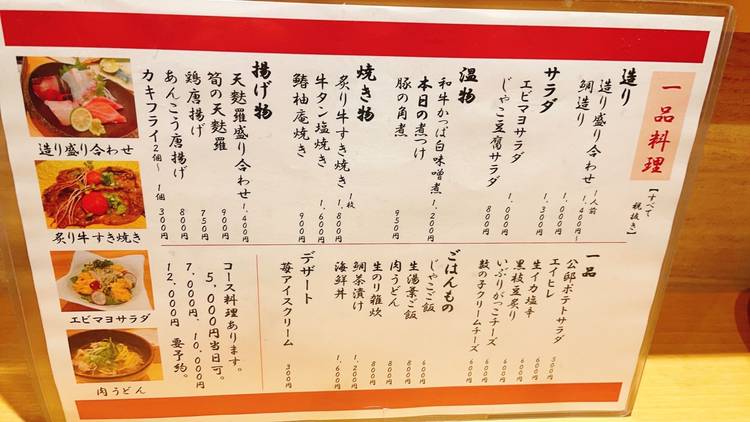 一品料理
【すべて税抜き】
造り
造り盛り合わせ 1人前 1,400円~
鯛造り 1,000円
サラダ
エビマヨサラダ 1,000円
じゃこ豆腐サラダ 800円
温物
和牛かっぱ白味噌煮 1,200円
本日の煮つけ
豚の角煮 950円
焼き物
炙り牛すき焼き 1枚 1,800円
牛タン塩焼き 1,600円
鰆柚庵焼き 900円
揚げ物
天麩羅盛り合わせ 1,400円
筍の天麩羅 900円
鶏唐揚げ 750円
あんこう唐揚げ 800円
カキフライ2個~ 1個 300円
一品
公邸ポテトサラダ
エイヒレ 500円
生イカ塩辛 600円
黒枝豆炙り 600円
いぶりがっこチーズ 600円
鼓の子クリームチーズ 600円
ごはんもの
じゃこご飯 600円
生湯葉ご飯 800円
肉うどん 800円
生のり雑炊 800円
鯛茶漬け 1,200円
海鮮丼 1,600円
デザート
苺アイスクリーム 300円
コース料理あります。
5,000円当日可。
7,000円、10,000円
12,000円 要予約。
造り盛り合わせ
炙り牛すき焼き
エビマヨサラダ
肉うどん